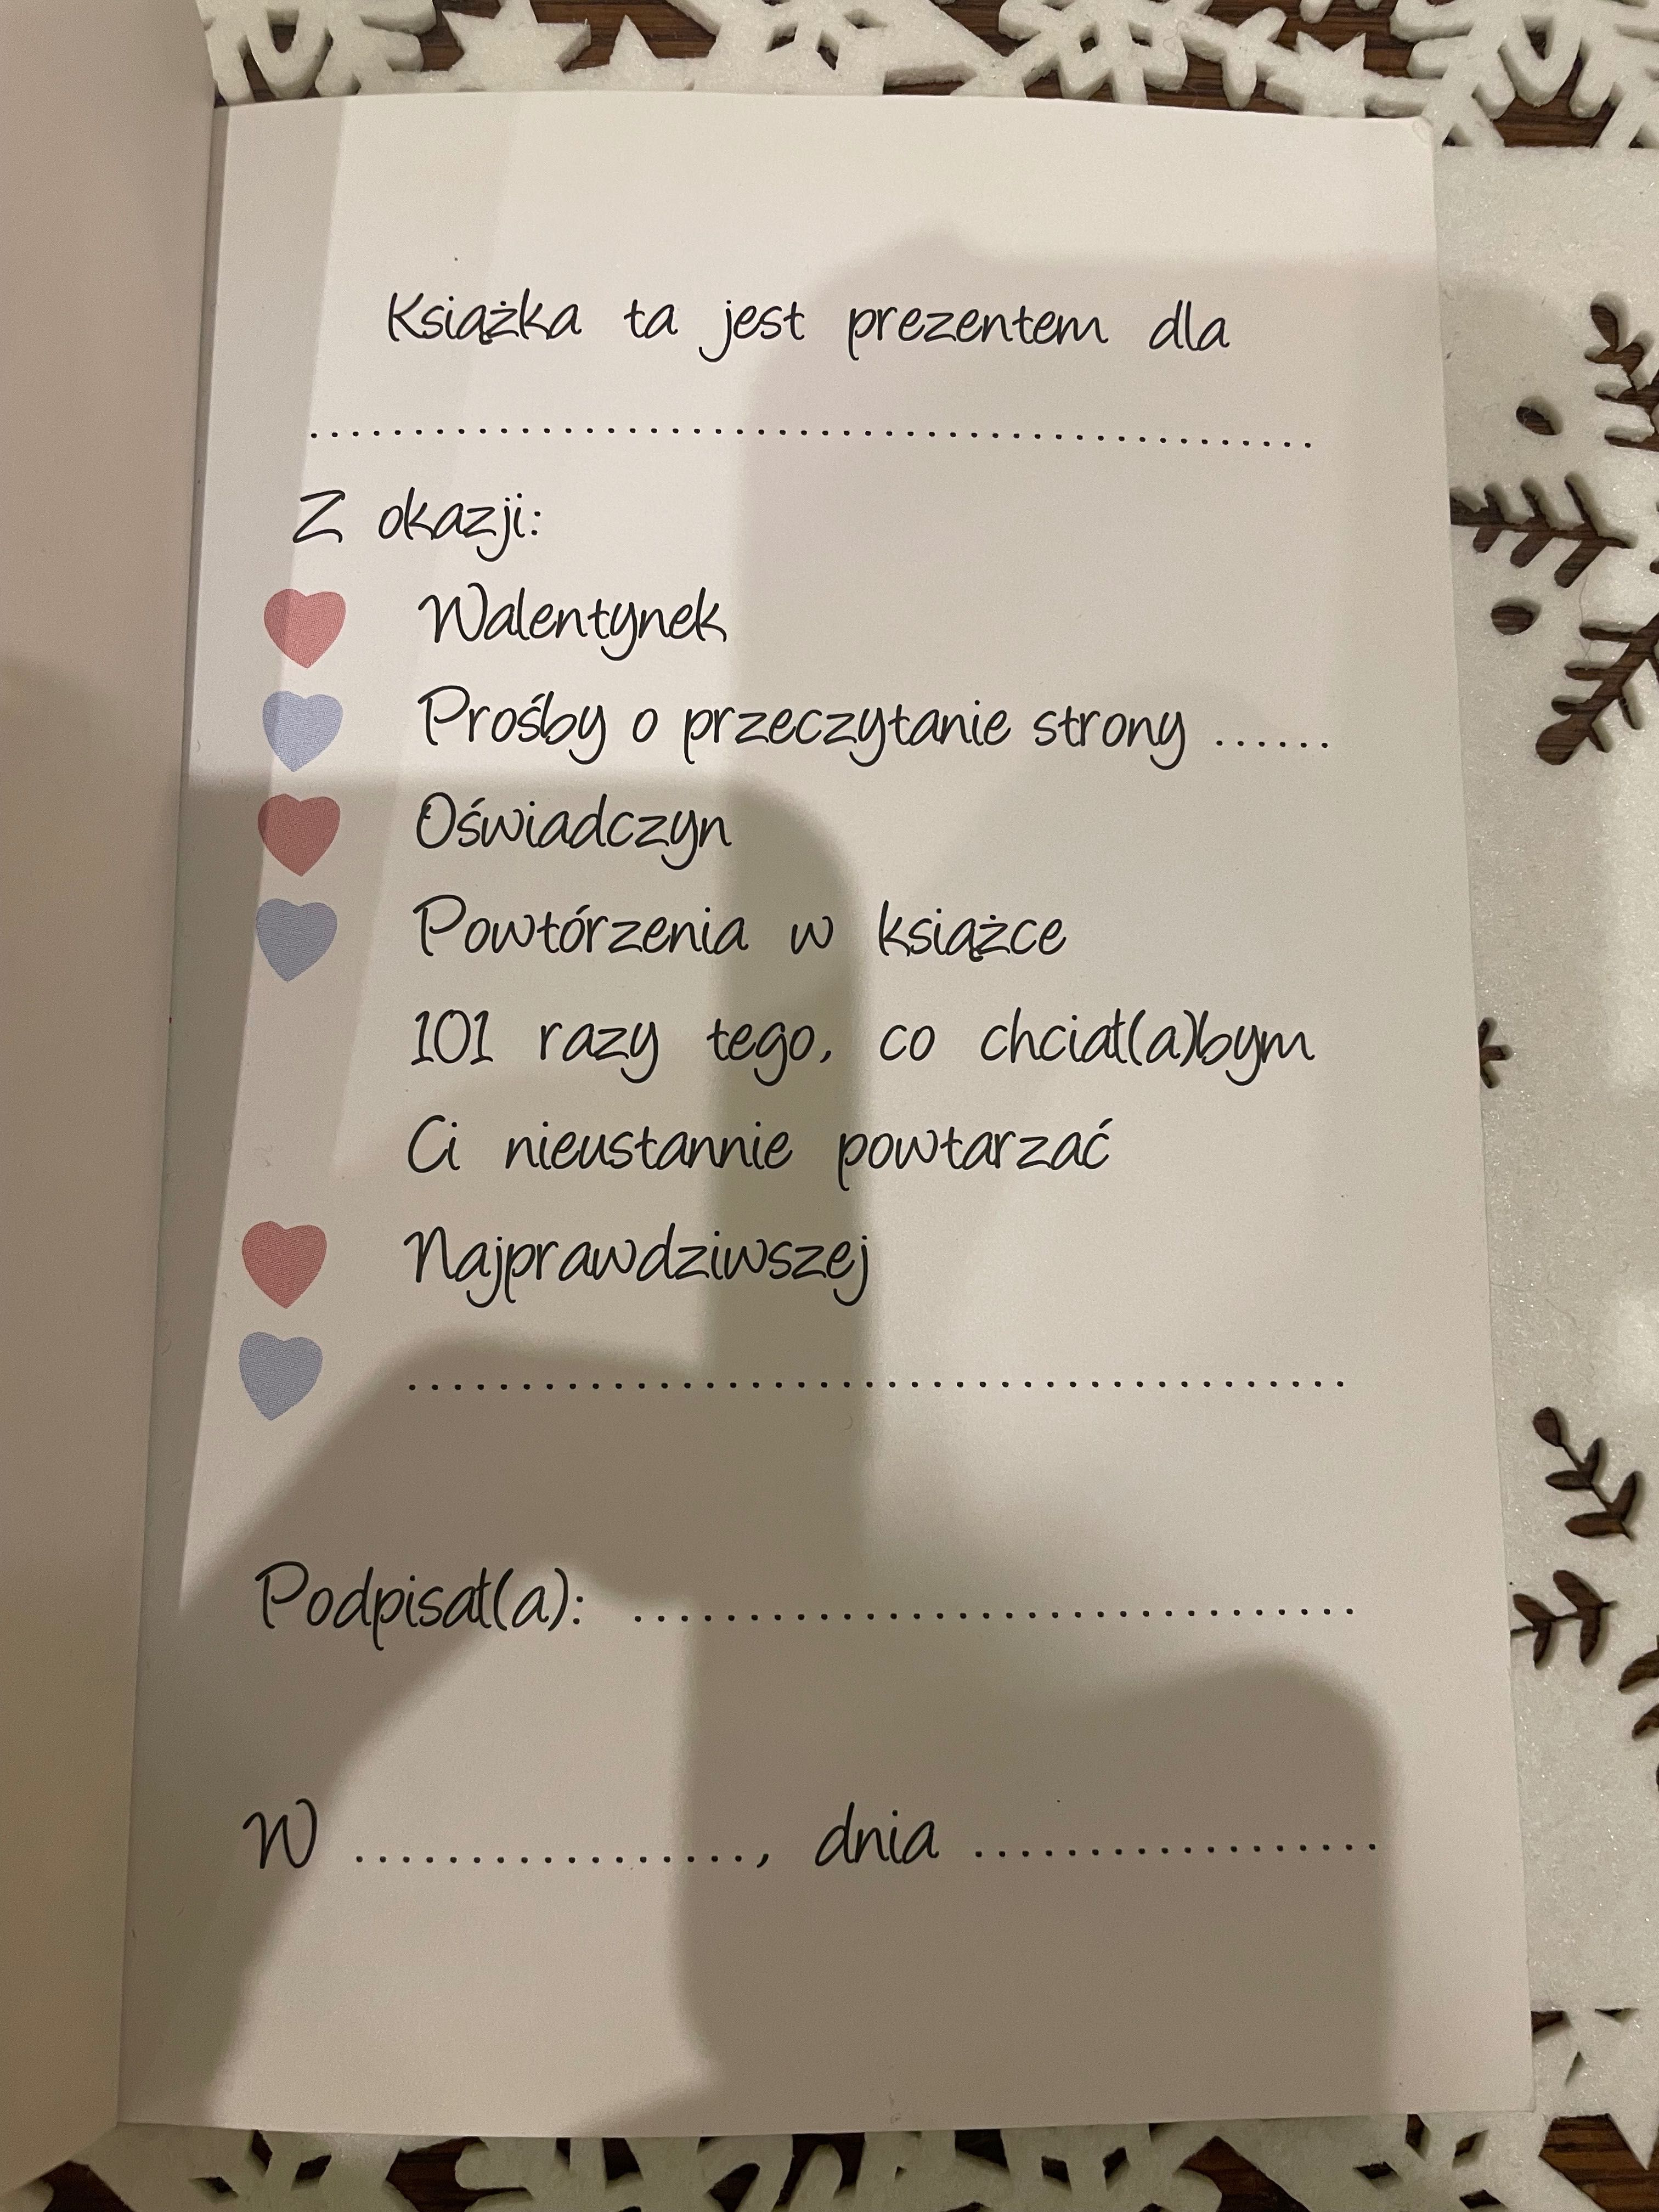 Książka ta jest prezentem dla
..................................................
Z okazji:
Walentynek
Prośby o przeczytanie strony ......
Oświadczyn
Powtórzenia w książce
101 razy tego, co chciał(a)bym
Ci nieustannie powtarzać
Najprawdziwszej
...........................................
Podpisał(a): .................................
W .................., dnia ..................